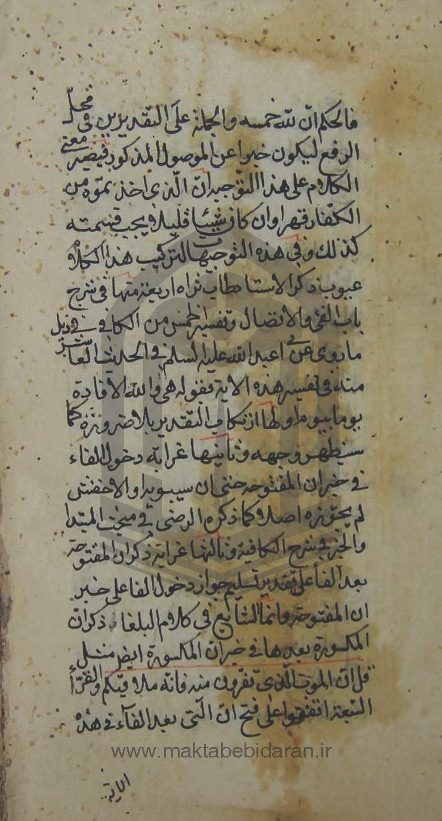 فالحكم ان لله خمسه والجملة على التقديرين فى محل
الرفع ليكون خبرا عن الموصول المذكور فيصير معنى
الكلام على هذا التوجيه ان الذى اخذتموه من
الكفار قهرا وان كان شيئا قليلا يجب قسمته
كذلك وفى هذه التوجيها لتركيب هذا الكلام
عيوب ذكر الاستاد طاب ثراه اربعة منها فى شرح
باب الفئ والانفال وتفسير الخمس من الكافى فى ذيل
ما روى عن ابى عبد الله عليه السلم فى الحديث العاشر
منه فى تفسير هذه الاية بقوله هى والله الافادة
يوما بيوم اولها ارتكاب التقدير بلا ضرورة كما
سيظهر وجهه وثانيها غرابة دخول الفاء
فى خبر ان المفتوحة حتى ان سيبويه والاخفش
لم يجوزه اصلا كما ذكره الرضى فى مبحث المبتدا
والخبر فى شرح الكافية وثالثها غرابة ذكر ان المفتوحة
بعد الفاء على تقدير تسليم جواز دخول الفا على خبر
ان المفتوحة وانما الشايع فى كلام البلغاء ذكر ان
المكسورة بعدها فى خبر ان المكسورة ايض مثل
قل ان الموت الذى تفرون منه فانه ملاقيكم والقرا
السبعة اتفقوا على فتح ان التى بعد الفاء فى هذه
الاية
www.maktabebidaran.ir